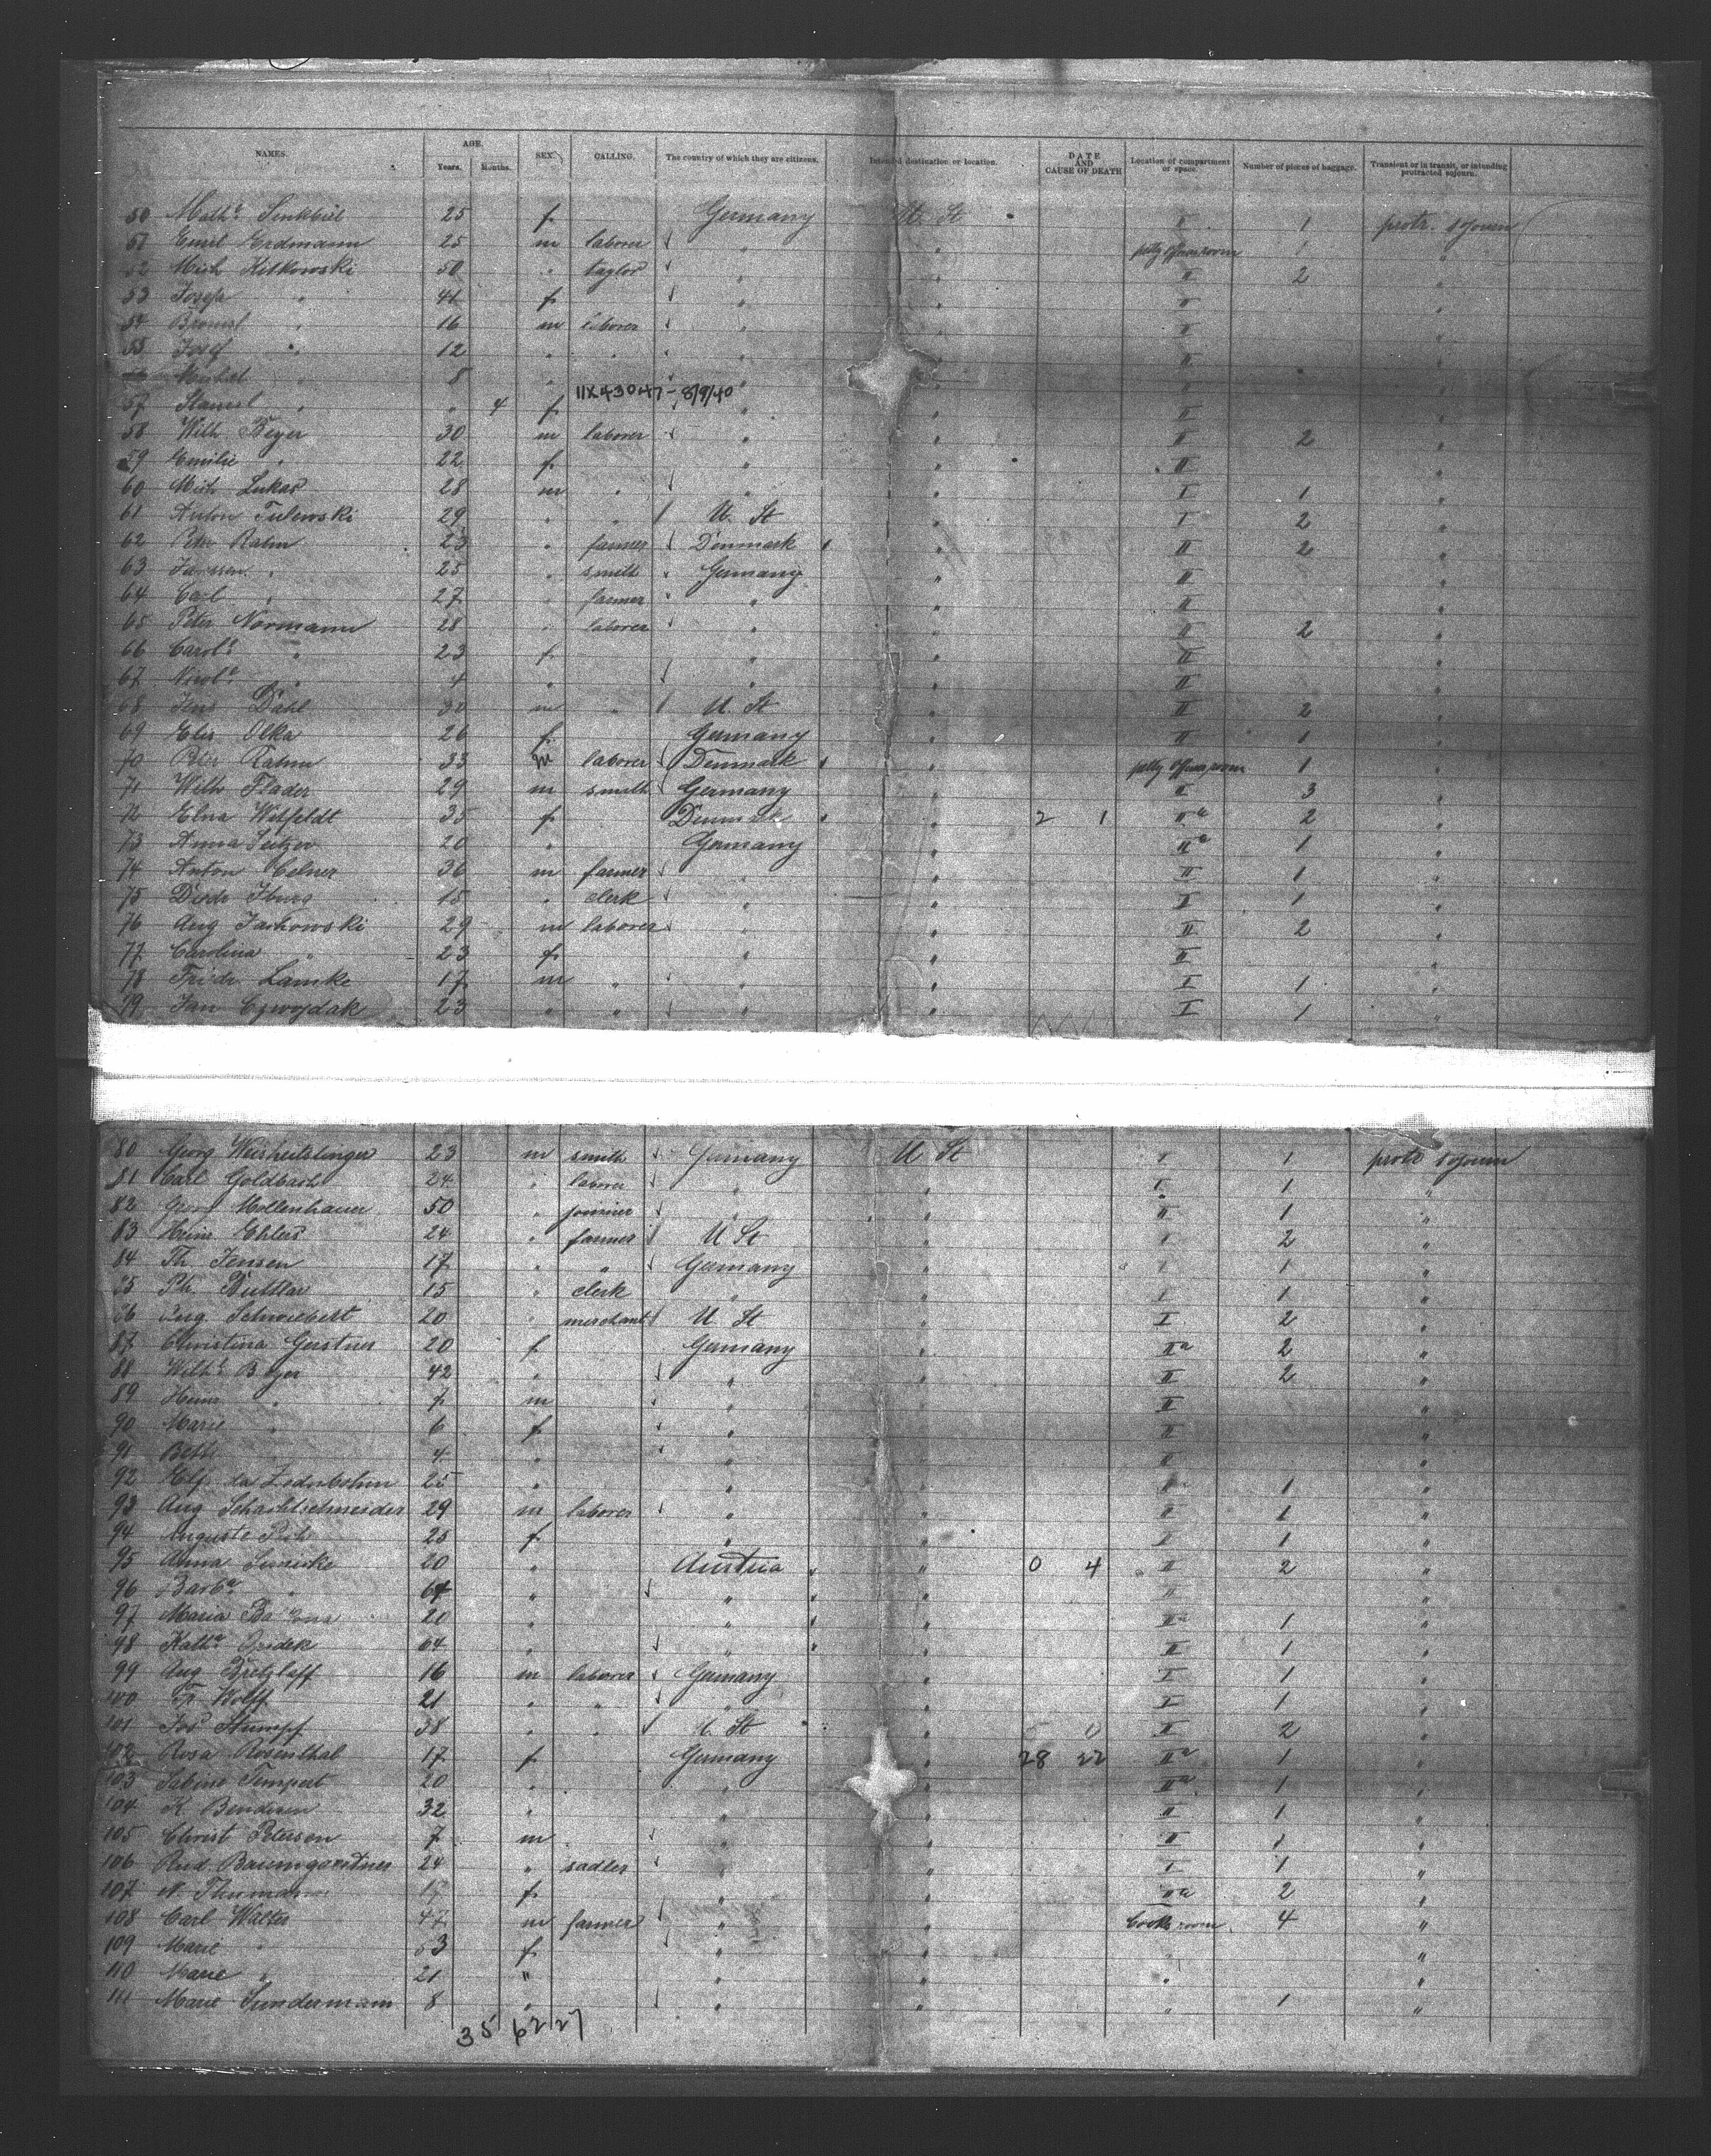 NAMES. AGE. Years. Months. SEX. CALLING. The country of which they are citizens. Intended destination or location. DATE AND CAUSE OF DEATH Location of compartment or space. Number of pieces of baggage. Transient or in transit, or intending protracted sojourn.
50 Math. 25 f Germany U. St I 1 protr. sojourn
51 Emil Erdmann 25 m laborer " " petty officers room "
52 Mich Kitkowski 50 " taylor " " II 2 "
53 Josefa " 41 f " " II "
54 " 16 m laborer " " II "
55 Josef " 12 " " " " II "
Michal " 8 " " "
11X43047 - 8/9/40
57 Stanisl " " 4 f " " II "
58 Wilh Beyer 30 m laborer " " II 2 "
59 Emilie " 22 f " " II "
60 Mich Lukas 28 m " " " I 1 "
61 Anton 29 " " U. St " I 2 "
62 Peter Rahn 23 " farmer Denmark " II 2 "
63 " 25 " smith Germany " II "
64 Carl " 27 " farmer " " II "
65 Peter Normann 28 " laborer " " II 2 "
66 Carol. " 23 f " " II "
67 " 4 " " " II "
68 Jens Dahl m " U. St " II 2 "
69 Elis Olka 26 f Germany " II 1 "
70 Peter Rahn 33 m laborer Denmark " petty officers room 1 "
71 Wilh Flader 29 m smith Germany " II 3 "
72 Elna Witfeldt 35 f Denmark " 2 1 IIa 2 "
73 Anna 20 " Germany " IIa 1 "
74 Anton Celner 36 m farmer " " II 1 "
75 Diedr 15 " clerk " " I 1 "
76 Aug Jachowski 29 m laborer " " II 2 "
77 Carolina " 23 f " " II "
78 Friedr. Lamke 17 m " " " I 1 "
79 Jan Czwojdak 23 " " " " I 1 "
80 Georg Weisheitslinger 23 m smith Germany U St I 1 protr sojourn
81 Carl Goldbach 24 " laborer " " I 1 "
82 Mollenhauer 50 " joiner " " II 1 "
83 Heinr Ehlers 24 " farmer U St " I 2 "
84 Th. Jensen 17 " " Germany " I 1 "
85 Ph. Buttlar 15 " clerk " " I 1 "
86 Aug. Schwiebert 20 " merchant U St " I 2 "
87 Christina Gerstner 20 f Germany " IIa 2 "
88 Wilh. Beyer 42 " " " II 2 "
89 Heinr " 7 m " " II "
90 Marie " 6 f " " II "
91 " 4 " " " II "
92 25 " " " 1 "
93 Aug Schachtschneider 29 m laborer " " II 1 "
94 Auguste 25 f " " I 1 "
95 Anna 20 " Austria " 0 4 II 2 "
96 Barb. " 64 " " " II "
97 Maria 20 " " " IIa 1 "
98 Kath. 64 " " " II 1 "
99 Aug Bretzlaff 16 m laborer Germany " I 1 "
100 Fr. Wolff 21 " " " " I 1 "
101 Jos Stumpf 38 " " U. St " II 2 "
102 Rosa Rosenthal 17 f Germany " 28 22 IIa 1 "
103 Sabine Tempert 20 " " " IIa 1 "
104 K. Bendixen 32 " " " II 1 "
105 Christ Petersen 7 m " " II 1 "
106 Rud. Baumgardtner 24 " sadler " " I 1 "
107 N. f " " IIa 2 "
108 Carl Walter 47 m farmer " " Cooks room 4 "
109 Marie " 53 f " " "
110 Marie " 21 " " " " "
111 Marie Sundermann 8 " " " " 1 "
35 62 27